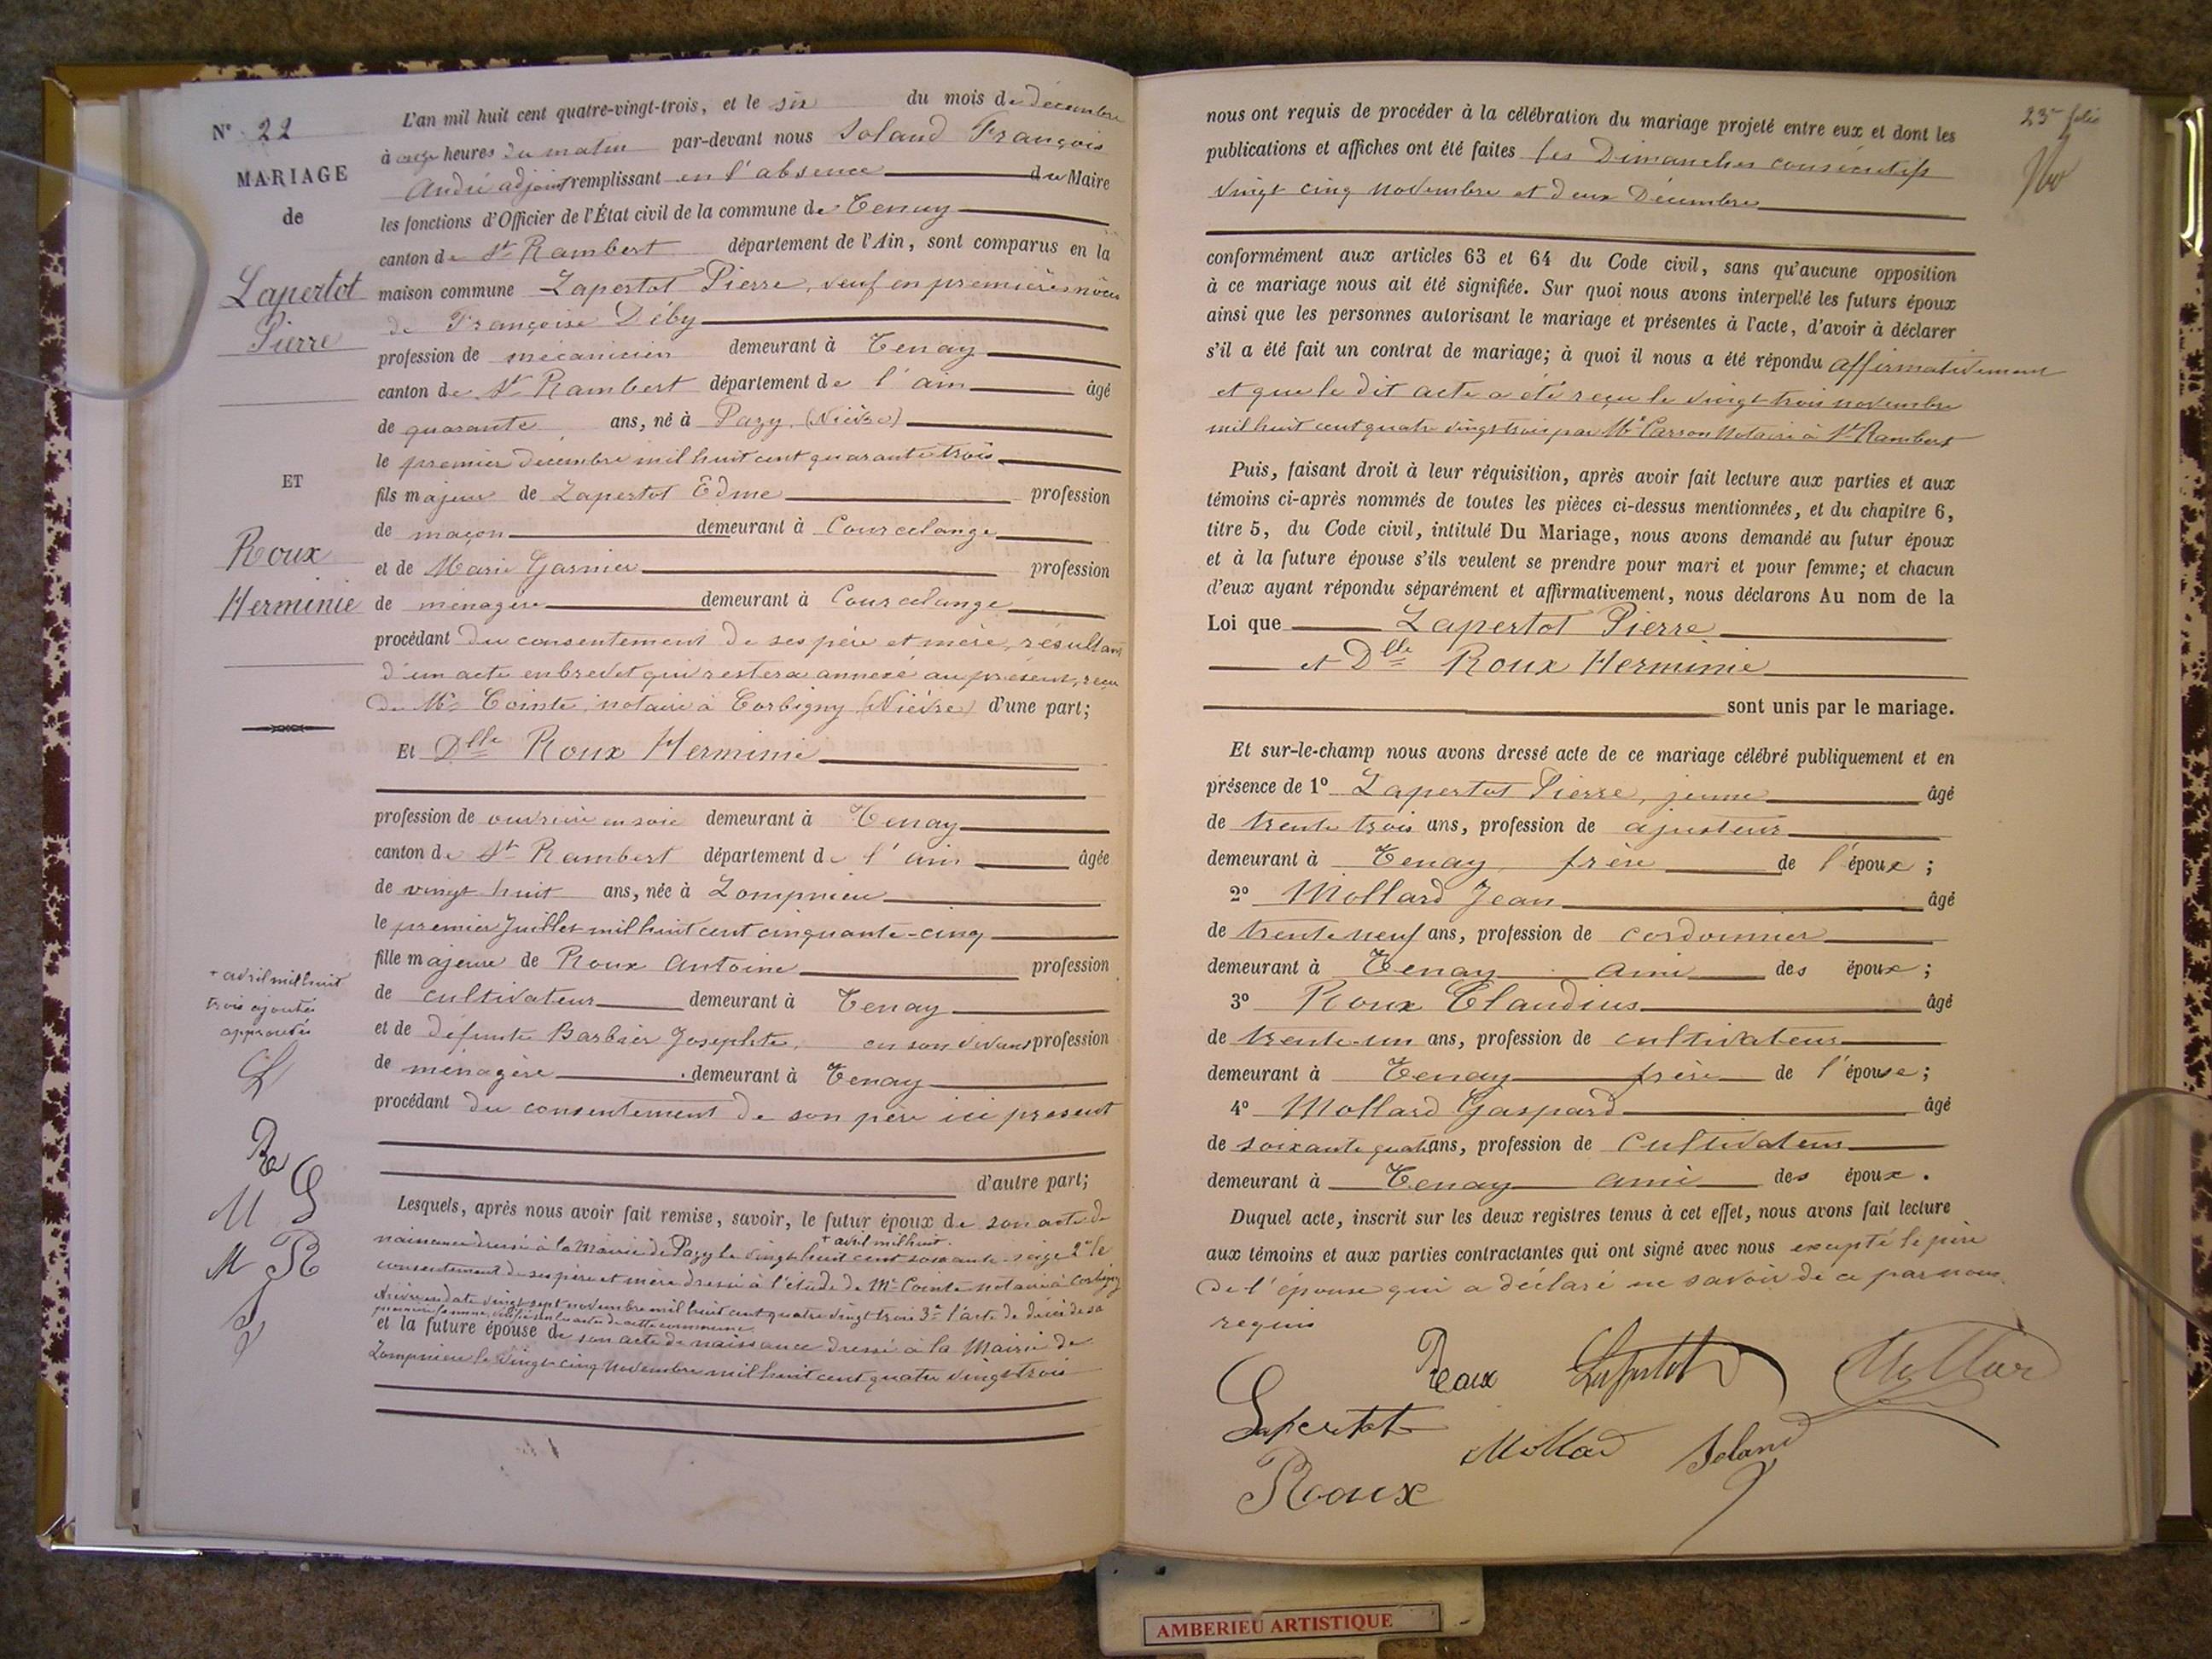 N° 22
MARIAGE
de
Lapertot
Pierre
ET
Roux
Herminie
+ avril mil huit
trois ajoutés
approuvés
L
Re
M S
M R
L'an mil huit cent quatre-vingt-trois, et le six du mois de décembre
à onze heures du matin par-devant nous Soland François
André adjoint remplissant en l'absence du Maire
les fonctions d'Officier de l'État civil de la commune de Tenay
canton de St Rambert département de l'Ain, sont comparus en la
maison commune Lapertot Pierre, veuf en premières noces
de Françoise Déby
profession de mécanicien demeurant à Tenay
canton de St Rambert département de l'ain âgé
de quarante ans, né à Pazy (Nièvre)
le premier decembre mil huit cent quarante trois
fils majeur de Lapertot Edme profession
de maçon demeurant à Courcelange
et de Marie Garnier profession
de menagère demeurant à Courcelange
procédant du consentement de ses père et mère, résultant
d'un acte en brevet qui restera annexé au présent, reçu
de Me Cointe, notaire à Corbigny (Nièvre) d'une part;
Et Dlle Roux Herminie
profession de ouvrière en soie demeurant à Tenay
canton de St Rambert département de l'ain âgée
de vingt huit ans, née à Lompnieu
le premier Juillet mil huit cent cinquante-cinq
fille majeure de Roux Antoine profession
de cultivateur demeurant à Tenay
et de défunte Barbier Josephte, en son vivant profession
de ménagère demeurant à Tenay
procédant du consentement de son père ici présent
d'autre part;
Lesquels, après nous avoir fait remise, savoir, le futur époux de son acte de
+ avril mil huit
naissance dressé à la Mairie de Pazy le vingt huit cent soixante seize 2° le
consentement de ses père et mère dressé à l'étude de Me Cointe notaire à Corbigny
Nièvre en date vingt-sept novembre mil huit cent quatre vingt trois 3° l'acte de décès de sa
première femme, vérifié sur les actes de cette commune
et la future épouse de son acte de naissance dressé à la Mairie de
Lompnieu le vingt-cinq Novembre mil huit cent quatre vingt trois
23e folio
nous ont requis de procéder à la célébration du mariage projeté entre eux et dont les
publications et affiches ont été faites les Dimanches consécutifs
vingt cinq Novembre et deux Décembre
conformément aux articles 63 et 64 du Code civil, sans qu'aucune opposition
à ce mariage nous ait été signifiée. Sur quoi nous avons interpellé les futurs époux
ainsi que les personnes autorisant le mariage et présentes à l'acte, d'avoir à déclarer
s'il a été fait un contrat de mariage; à quoi il nous a été répondu affirmativement
et que le dit acte a été reçu le vingt-trois novembre
mil huit cent quatre vingt trois par Me Carron Notaire à St Rambert
Puis, faisant droit à leur réquisition, après avoir fait lecture aux parties et aux
témoins ci-après nommés de toutes les pièces ci-dessus mentionnées, et du chapitre 6,
titre 5, du Code civil, intitulé Du Mariage, nous avons demandé au futur époux
et à la future épouse s'ils veulent se prendre pour mari et pour femme; et chacun
d'eux ayant répondu séparément et affirmativement, nous déclarons Au nom de la
Loi que Lapertot Pierre
et Dlle Roux Herminie
sont unis par le mariage.
Et sur-le-champ nous avons dressé acte de ce mariage célébré publiquement et en
présence de 1° Lapertot Pierre, jeune âgé
de trente trois ans, profession de ajusteur
demeurant à Tenay frère de l'époux;
2° Mollard Jean âgé
de trente neuf ans, profession de cordonnier
demeurant à Tenay ami des époux;
3° Roux Claudius âgé
de trente-un ans, profession de cultivateur
demeurant à Tenay frère de l'épouse;
4° Mollard Gaspard âgé
de soixante quatre ans, profession de cultivateur
demeurant à Tenay ami des époux.
Duquel acte, inscrit sur les deux registres tenus à cet effet, nous avons fait lecture
aux témoins et aux parties contractantes qui ont signé avec nous excepté le père
de l'épouse qui a déclaré ne savoir de ce par nous
requis
Roux Lapertot Mollard
Lapertot Mollard Soland
Roux
AMBERIEU ARTISTIQUE